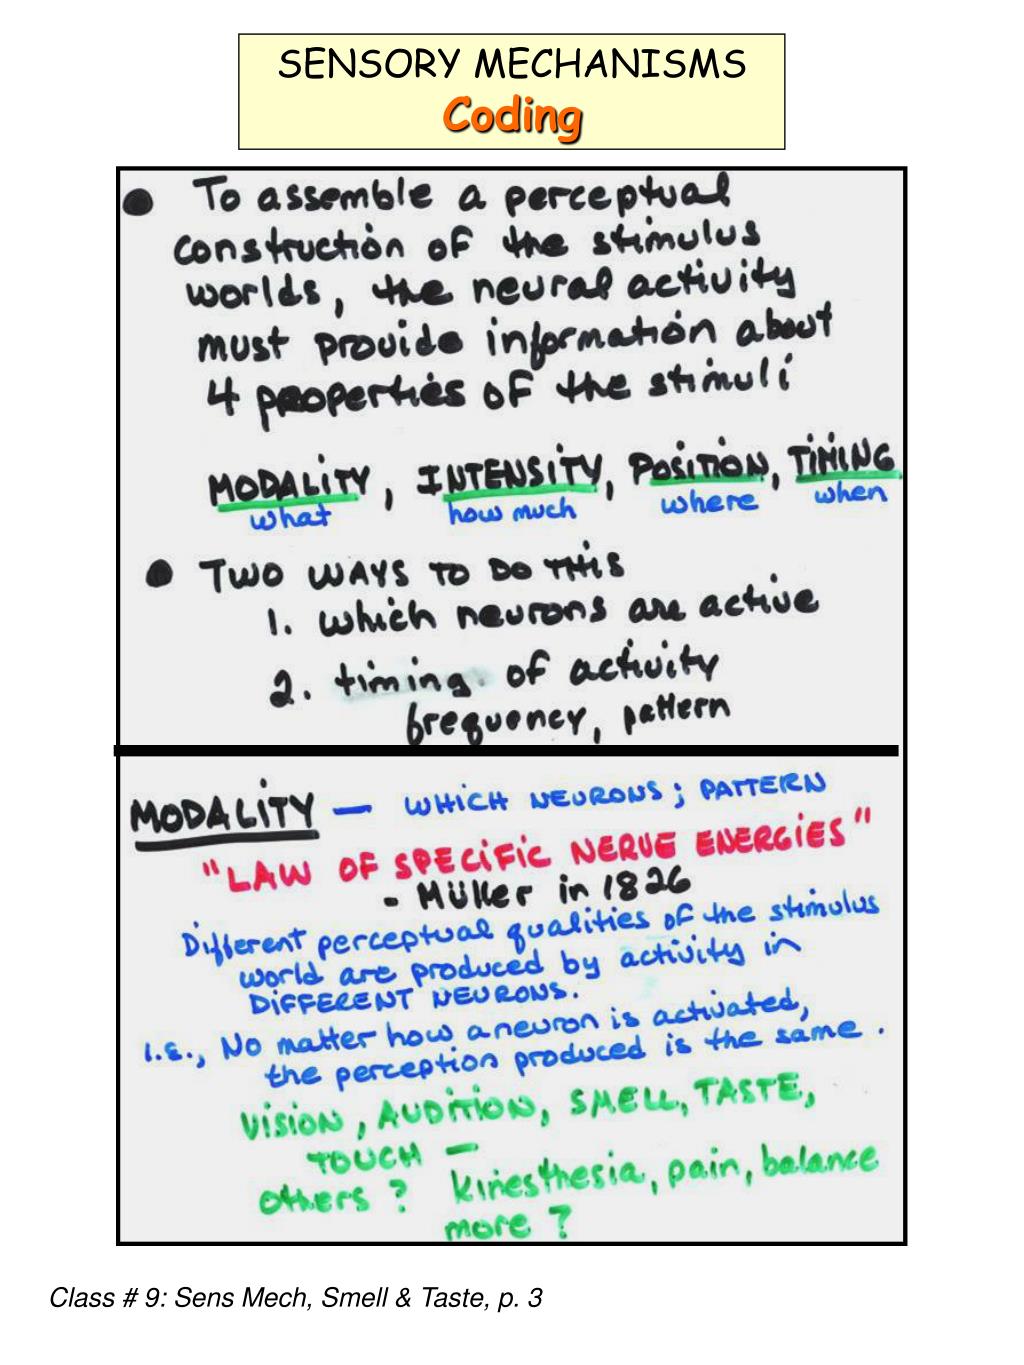 SENSORY MECHANISMS
Coding
● To assemble a perceptual
construction of the stimulus
worlds, the neural activity
must provide information about
4 properties of the stimuli
MODALITY, INTENSITY, POSITION, TIMING
what how much where when
● TWO WAYS TO DO THIS
1. which neurons are active
2. timing of activity
frequency, pattern
MODALITY — WHICH NEURONS; PATTERN
"LAW OF SPECIFIC NERVE ENERGIES"
- Müller in 1826
Different perceptual qualities of the stimulus
world are produced by activity in
DIFFERENT NEURONS.
i.e., No matter how a neuron is activated,
the perception produced is the same.
VISION, AUDITION, SMELL, TASTE,
TOUCH —
others? kinesthesia, pain, balance
more?
Class # 9: Sens Mech, Smell & Taste, p. 3